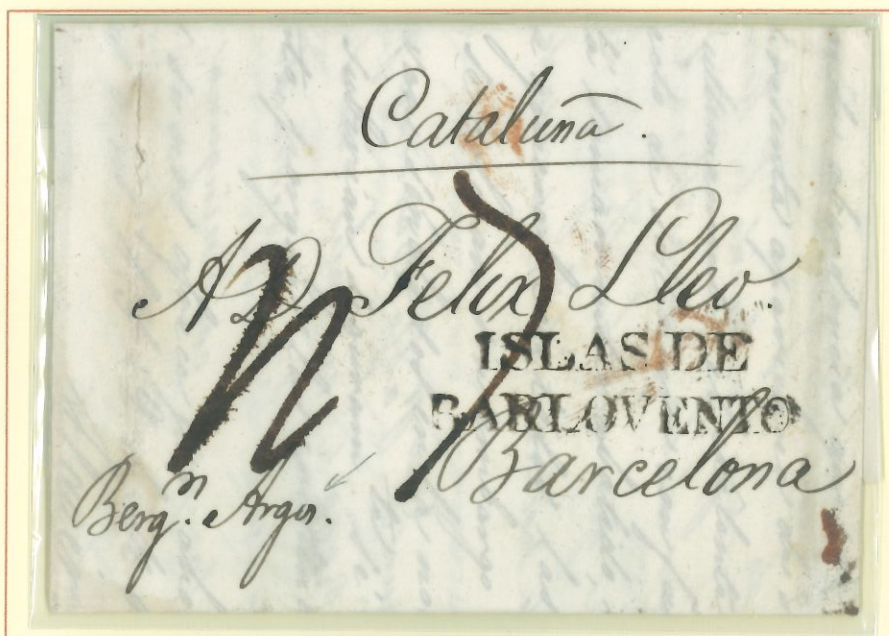 Cataluña.
A D. Felix Lleo.
ISLAS DE
BARLOVENTO
Barcelona
Berg.n Argos.